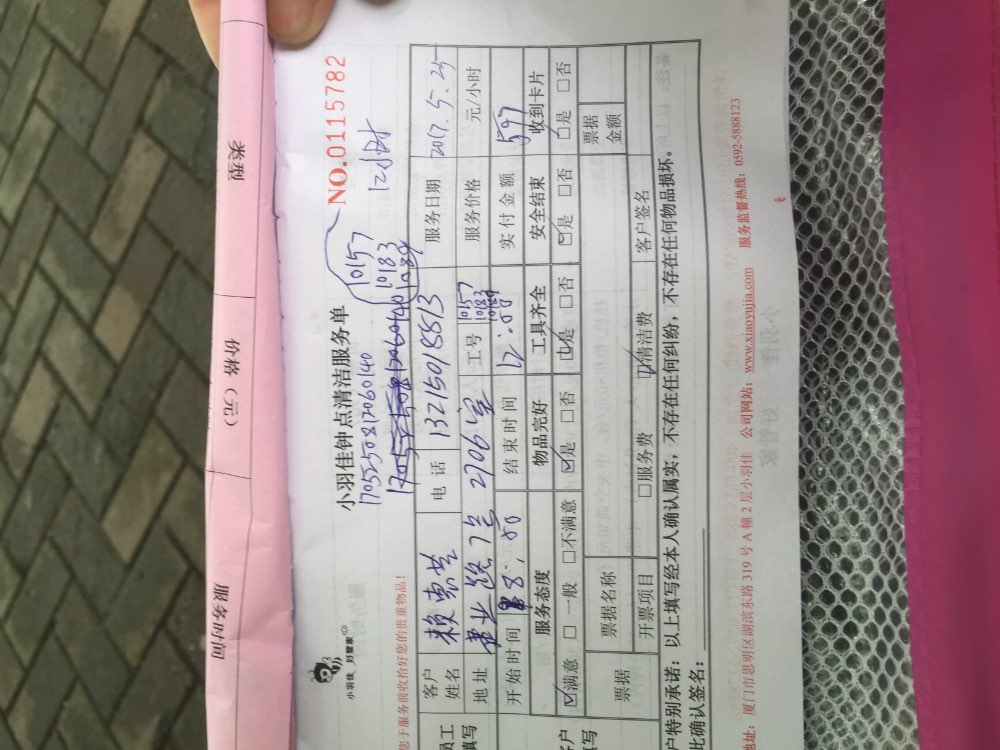 类型
价格（元）
服务时间
小羽佳 好管家
小羽佳钟点清洁服务单
NO.01115782
1705550812060140
10157
10183
10189
12小时
您于服务前收拾好您的贵重物品！
客户姓名
电话 13215018513
服务日期 2017.5.25
地址
7号 2706室
工号 10157 10183 10189
服务价格 元/小时
开始时间 8:00
结束时间 12:00
实付金额 597
服务态度 物品完好 工具齐全 安全结束 收到卡片
☑满意 □一般 □不满意 ☑是 □否 ☑是 □否 ☑是 □否 ☑是 □否
票据
票据名称
票据金额
开票项目 □服务费 ☑清洁费 客户签名
户特别承诺：以上填写经本人确认属实，不存在任何纠纷，不存在任何物品损坏。
此确认签名：
地址：厦门市思明区湖滨东路319号A幢2层小羽佳 公司网站：www.xiaoyujia.com 服务监督热线：0592-5888123